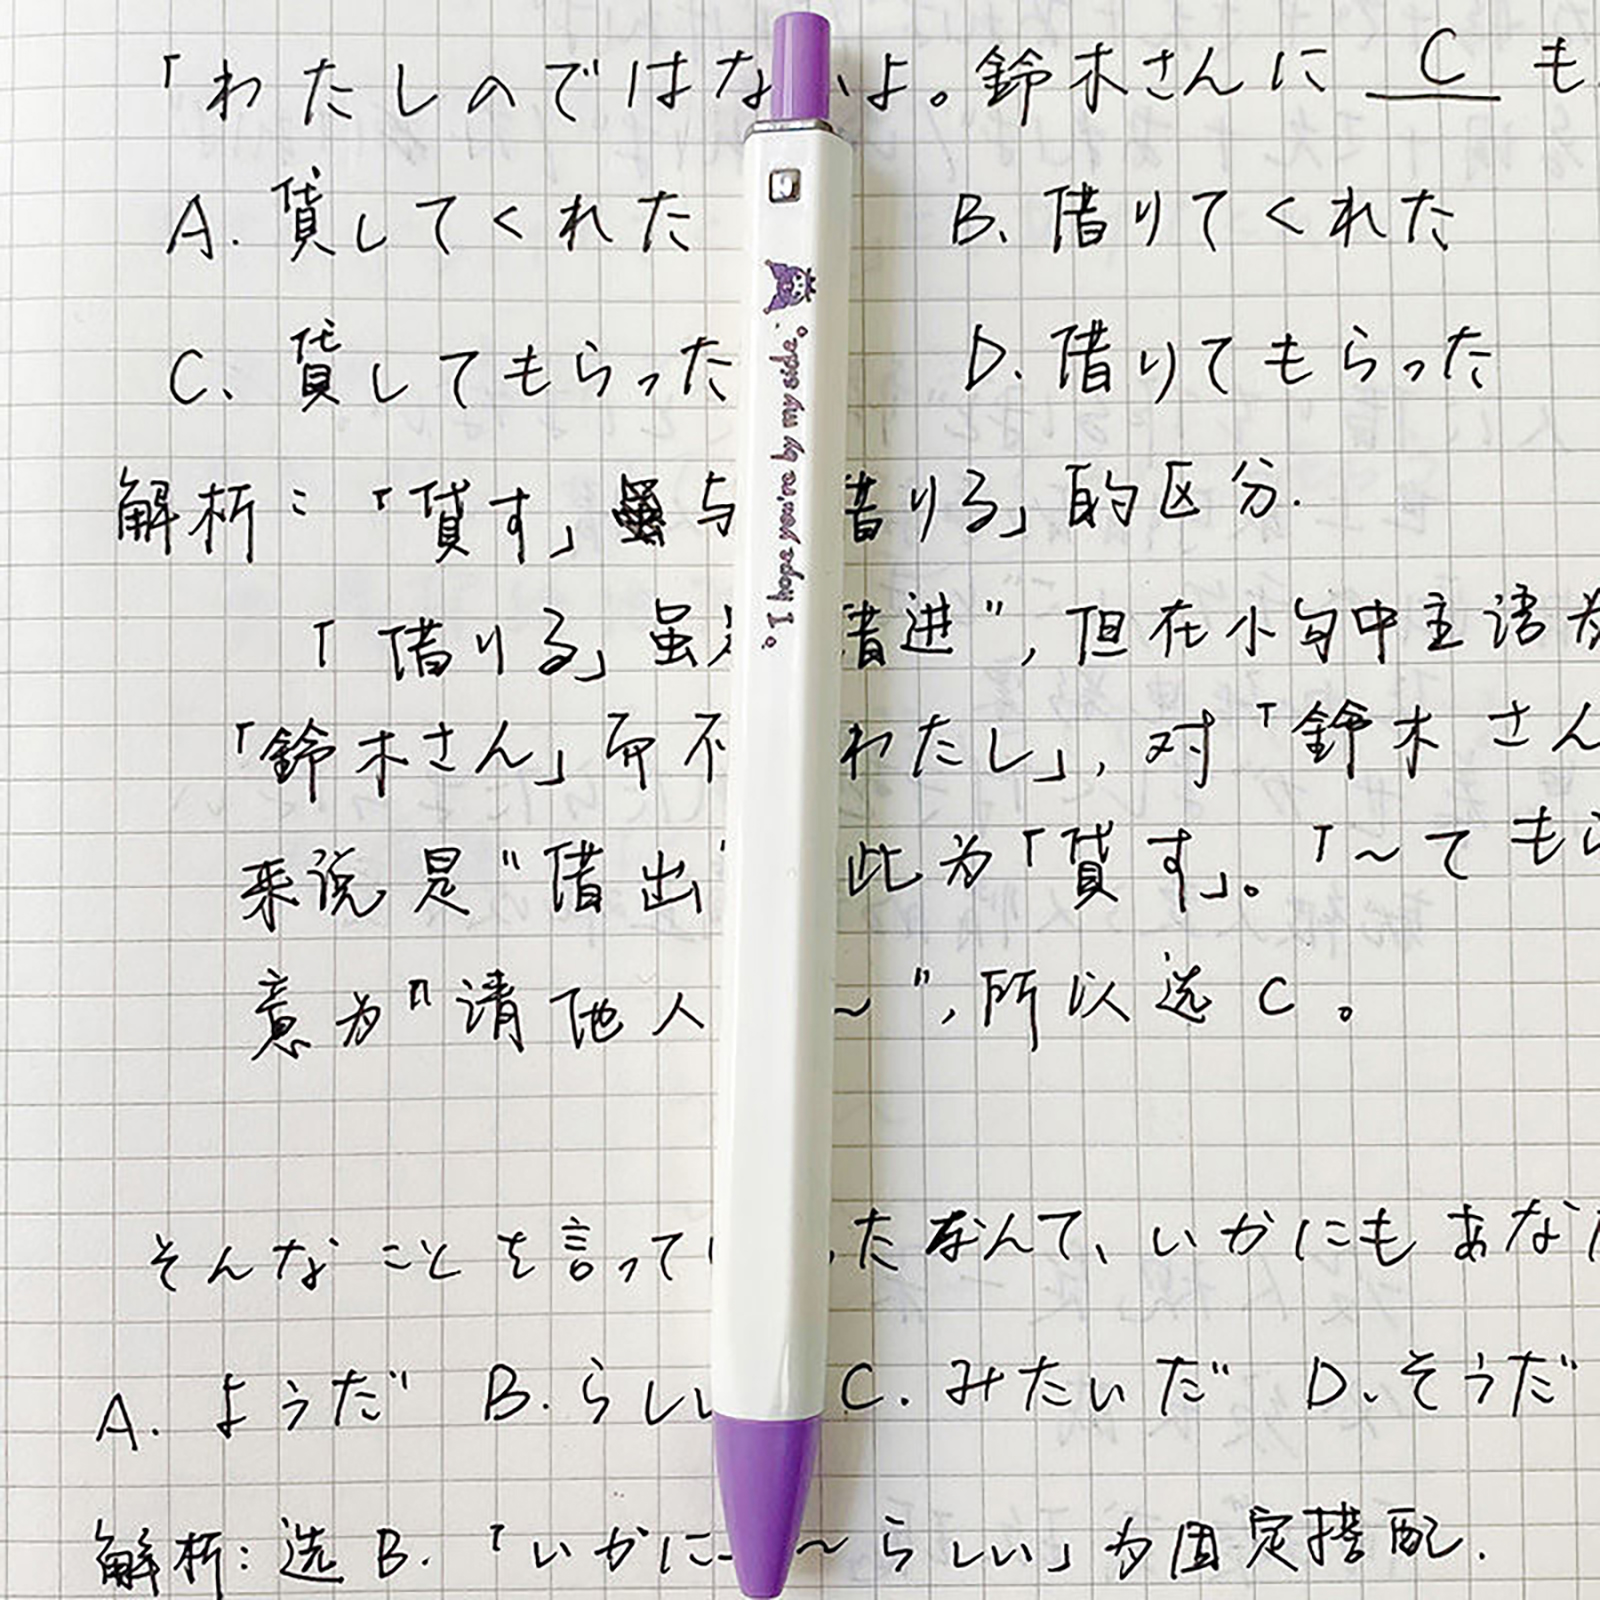 「わたしのではな よ。鈴木さんに C も
A. 貸してくれた B. 借りてくれた
C. 貸してもらった D. 借りてもらった
解析:「貸す」与 借りる」的区分.
「借りる」虽 借进",但在小句中主语为
「鈴木さん」而不 わたし」,对「鈴木さん
来说是"借出 此为「貸す」。「~てもら
意为"请他人 ~",所以选C。
そんなことを言って たなんて、いかにもあな
A. ようだ B. らしい C. みたいだ D. そうだ
解析:选B.「いかに ~らしい」为固定搭配.
I hope you're by my side.